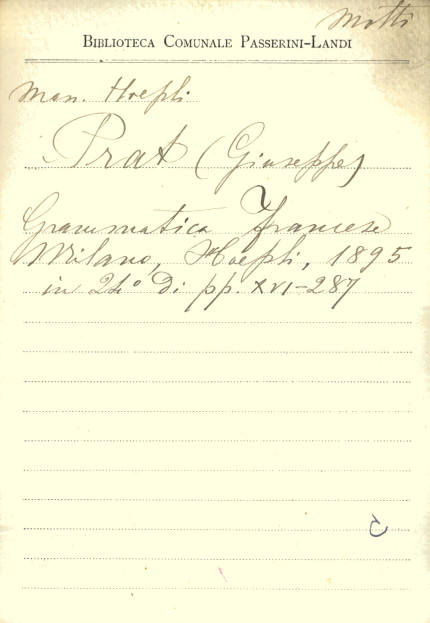 Motti
BIBLIOTECA COMUNALE PASSERINI-LANDI
Man. Hoepli
Prat (Giuseppe)
Grammatica francese
Milano, Hoepli, 1895
in 24° di pp. XVI-287
C